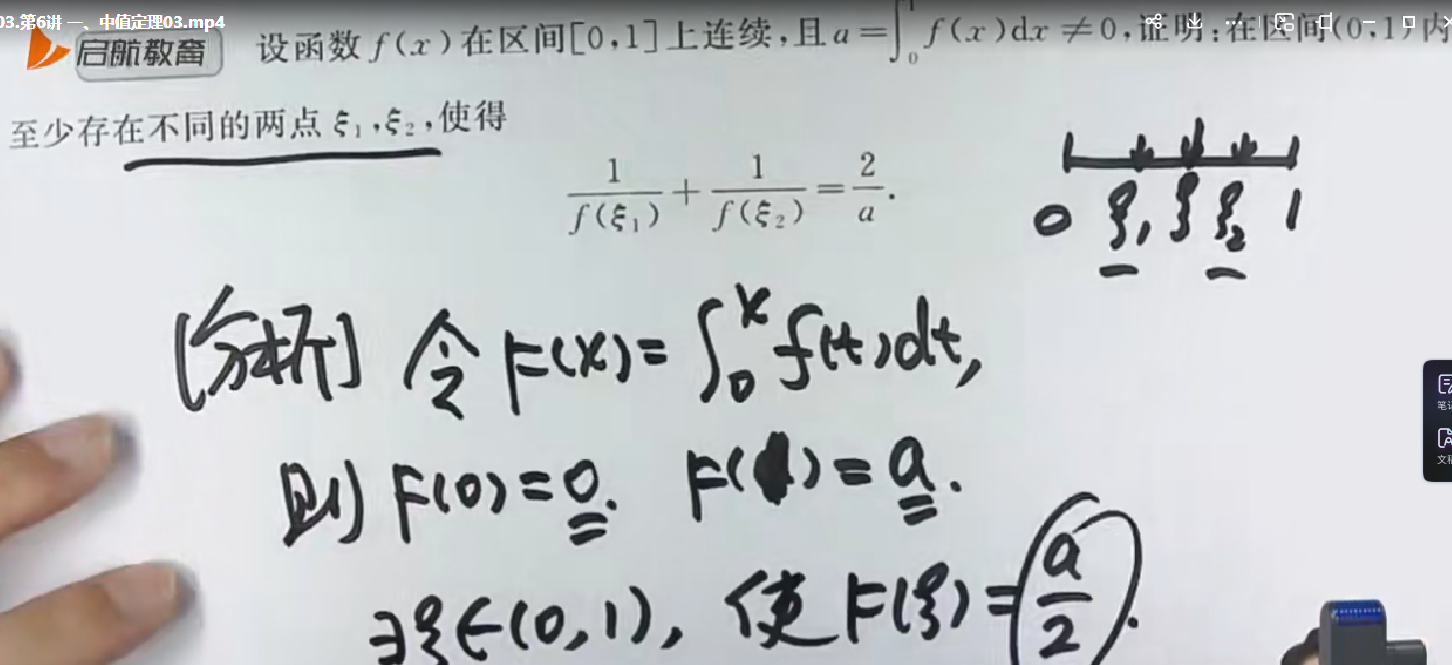 03.第6讲 一、中值定理03.mp4
启航教育 设函数 f(x) 在区间[0,1]上连续,且 a=∫₀¹ f(x)dx≠0,证明:在区间(0,1)内
至少存在不同的两点 ξ₁,ξ₂,使得
1/f(ξ₁) + 1/f(ξ₂) = 2/a.
0 ξ₁ ξ ξ₂ 1
[分析] 令 F(x)=∫₀ˣ f(t)dt,
则 F(0)=0. F(1)=a.
∃ξ∈(0,1), 使 F(ξ)=a/2.
笔记